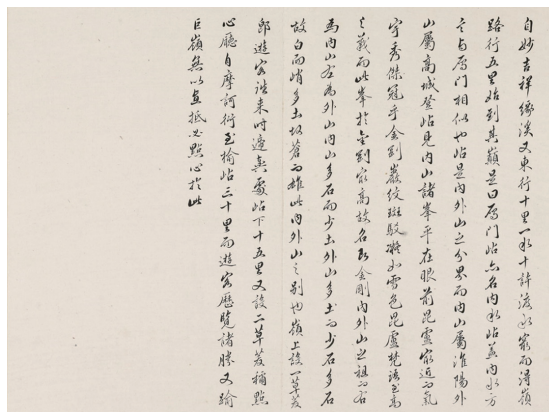 自妙吉祥緣溪又東行十里一水十許渡水窮而得嶺
路行五里始到其巔是曰鴈門岾亦名內水岾蓋內水方
言与鴈門相似也岾是內外山之分界而內山屬淮陽外
山屬高城登岾見內山諸峯平在眼前毘盧㝡近而氣
宇秀傑冠乎金剛巖紋斑駁凝如雪色毘盧梵語至高
之義而此峯於金剛㝡高故名即金剛內外山之祖而右
為內山左為外山內山多石而少土外山多土而少石多石
故白而峭多土故蒼而雄此內外山之別也嶺上設一草菴
郎遊客諧来時遞輿處岾下十五里又設二草菴補點
心廳自摩訶衍至榆岾三十里而遊客歷覽諸勝又踰
巨嶺無以直抵必點心於此